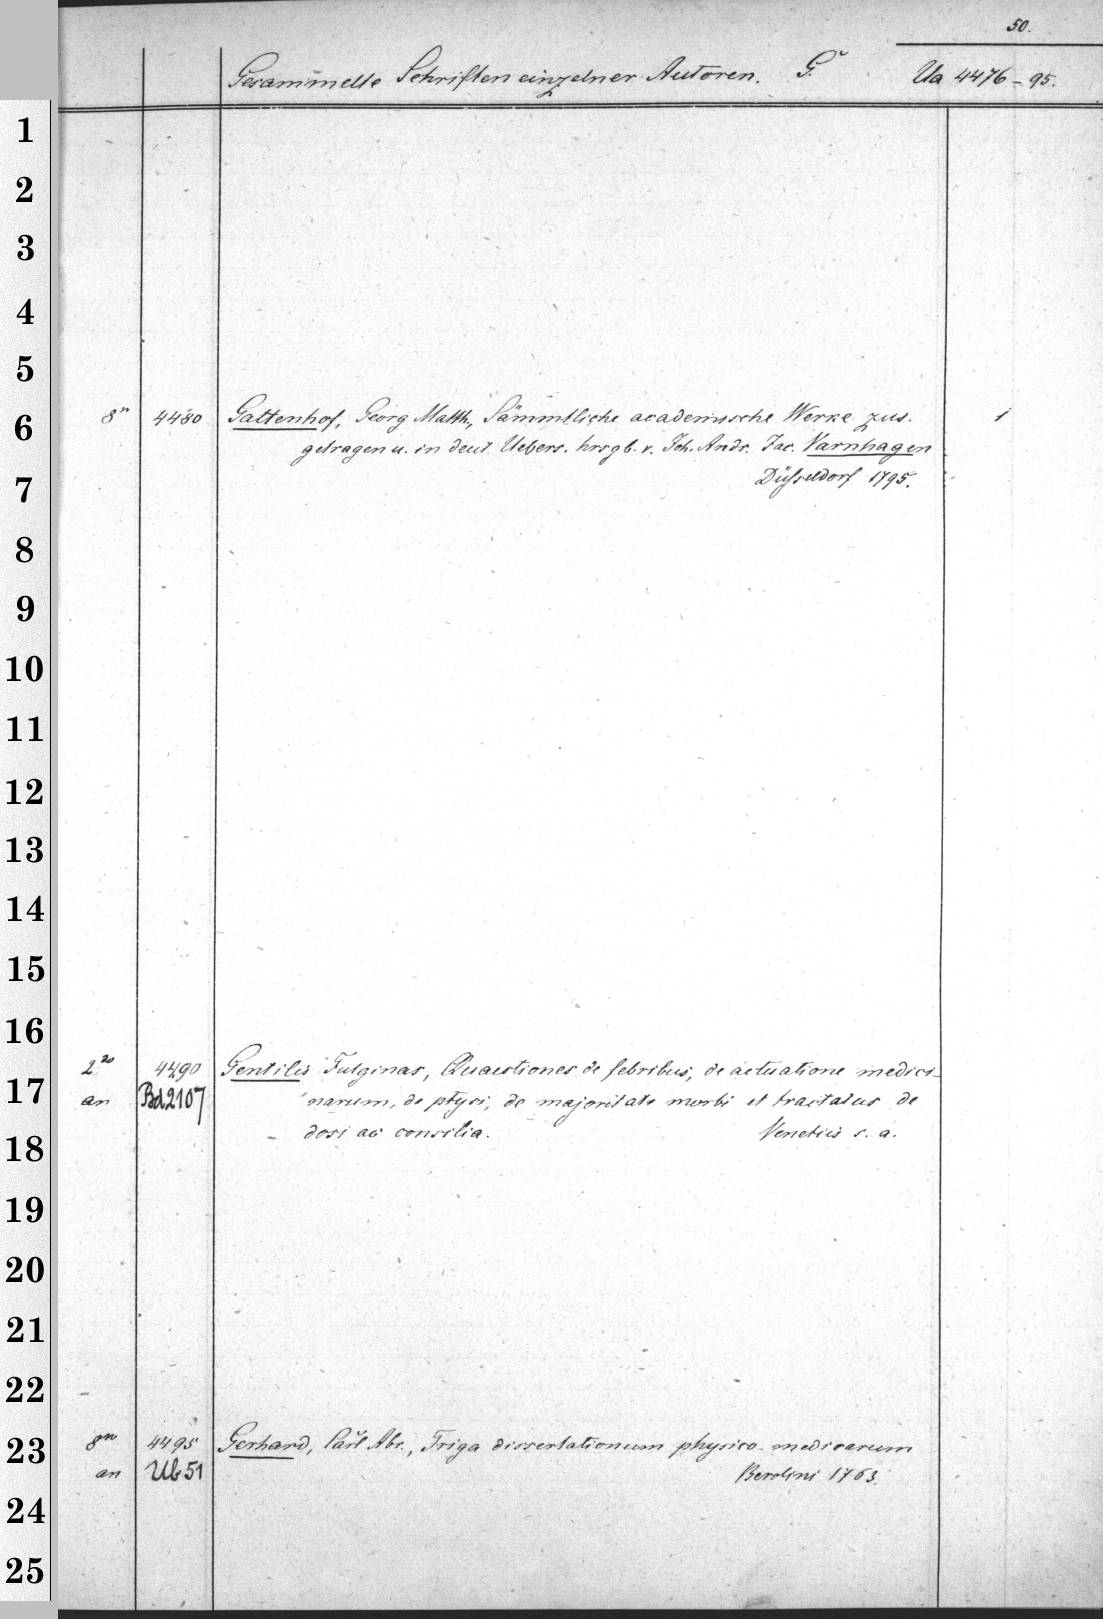 50.
Gesammelte Schriften einzelner Autoren. G. Ua 4476-95.
1
2
3
4
5
6
8° 4480 Gattenhof, Georg Matth., Sämmtliche academische Werke zus. 1
getragen u. in deut. Uebers. hrsgb. v. Joh. Andr. Jac. Varnhagen
7
Düsseldorf 1795.
8
9
10
11
12
13
14
15
16
2° 4490 Gentilis Fulginas, Quaestiones de febribus, de actuatione medici-
17
an Bd2107 narum, de ptysi, de majoritate morbi et tractatus de
18
dosi ac consilia. Venetiis s. a.
19
20
21
22
23
8° 4495 Gerhard, Carl Abr., Triga dissertationum physico-medicarum
an Ub 51 Berolini 1763.
24
25